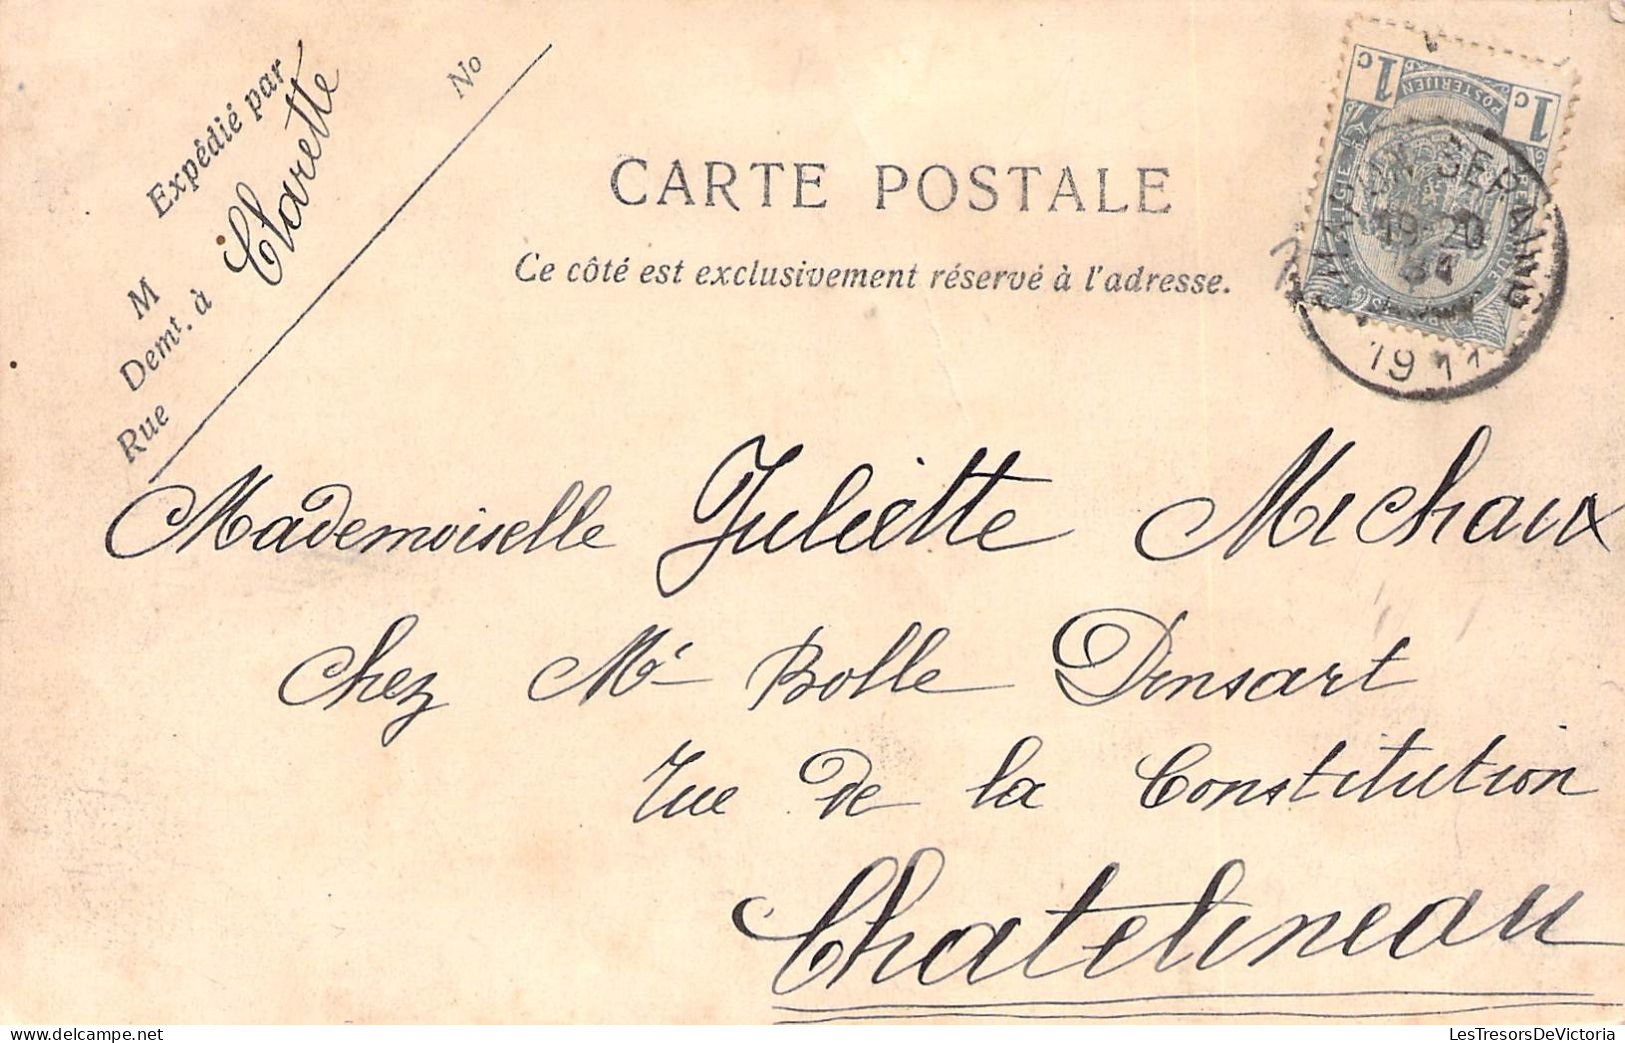 Expédié par
Clarette
No
M
Demt. à
Rue
CARTE POSTALE
Ce côté est exclusivement réservé à l'adresse.
1c 1c
POSTERIJEN
19-20
1911
Mademoiselle Juliette Michaux
Chez Mr Bolle Densart
rue de la Constitution
Chatelineau
delcampe.net
LesTresorsDeVictoria